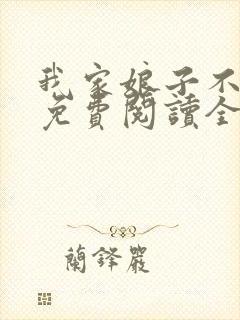 我家娘子不
免費閱讀全
蘭鋒嚴